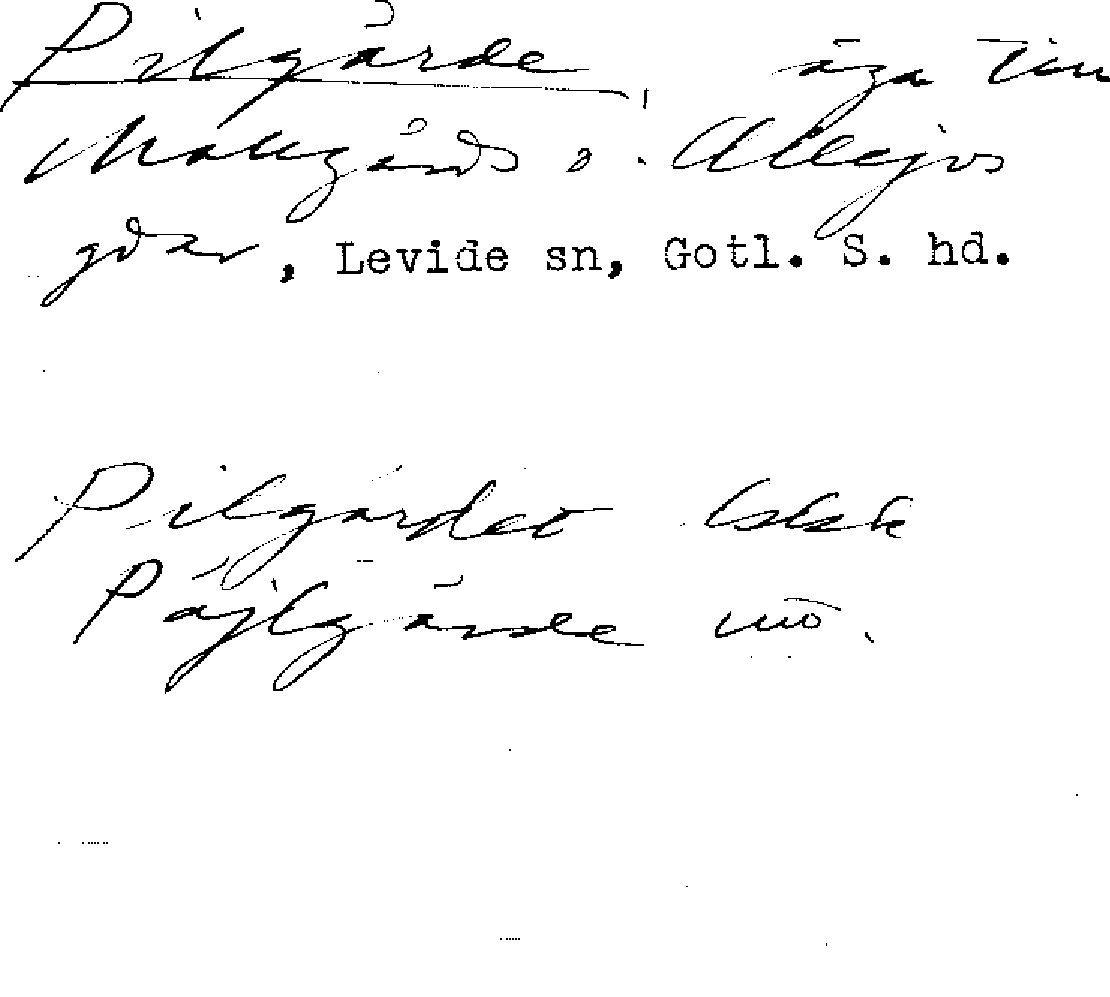 Pilgärde, äga till
Mallgårds o. Allajvs
gdar, Levide sn, Gotl. S. hd.
Pilgärdet
Päjlgärde mo.